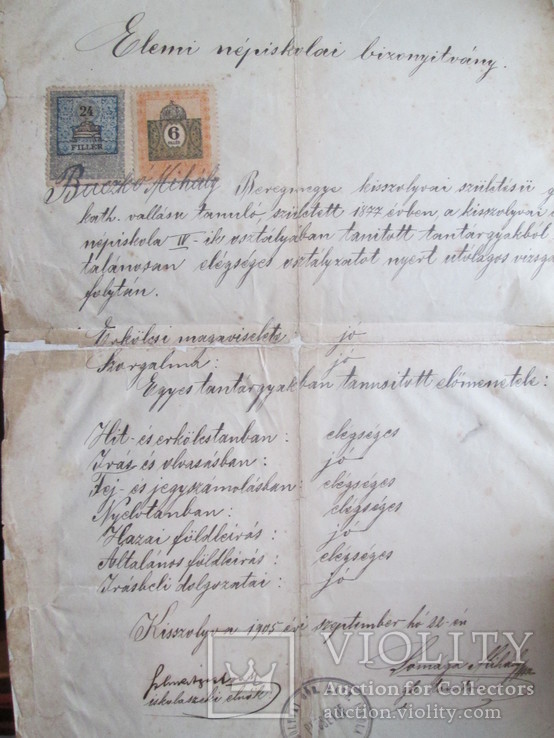 Elemi népiskolai bizonyitvány.
24
FILLER
6
Buczkó Mihály Beregmegye kisszolyvai születésü g
kath. vallásu tanuló, született 1877 évben, a kisszolyvai
népiskola IV-ik osztályában tanitott tantárgyakból
talánosan elégséges osztályzatot nyert utólagos vizsga
folytán.
Erkölcsi magaviselete: jó
Szorgalma: jó
Egyes tantárgyakban tanusitott előmenetele:
Hit- és erkölcstanban: elégséges
Irás és olvasásban: jó
Fej- és jegyszámolásban: elégséges
Nyelvtanban: elégséges
Hazai földleirás: jó
Általános földleirás: elégséges
Irásbeli dolgozatai: jó
Kisszolyva 1905 évi szeptember hó 22-én
iskolaszéki elnök
VIOLITY
Auction for Collectors
auction.violity.com